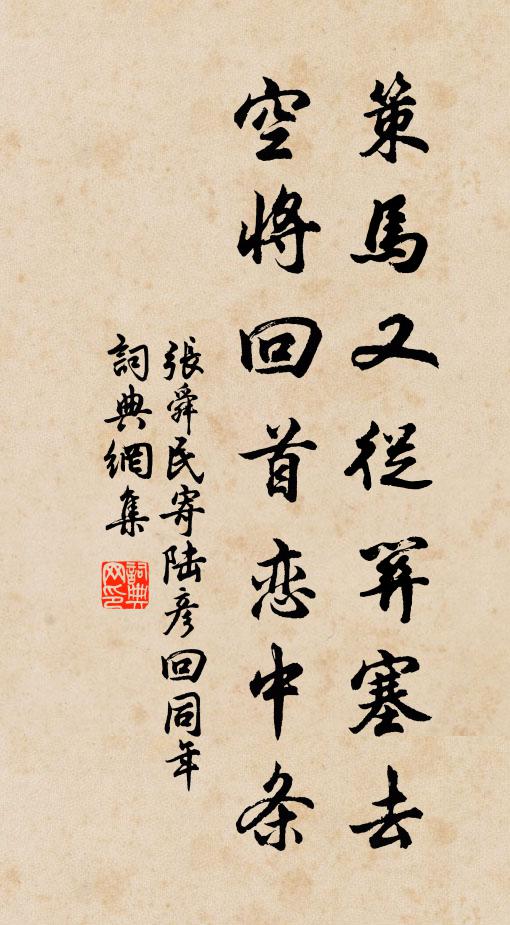 策馬又從關塞去
空將回首恋中条
張舜民寄陆彦回同年
詞典網集
詞典网印